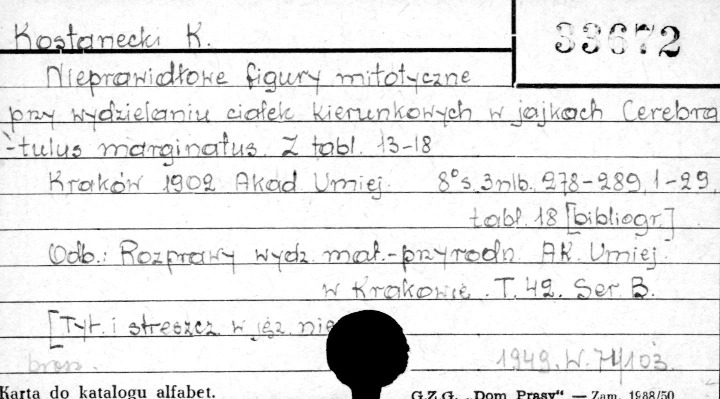 Kostanecki K.
33672
Nieprawidłowe figury mitotyczne
przy wydzielaniu ciałek kierunkowych w jajkach Cerebra
-tulus marginatus. Z tabl. 13-18
Kraków 1902 Akad. Umiej. 8°s. 3nlb., 278-289, 1-29,
tabl. 18 [bibliogr.]
Odb.: Rozprawy wydz. mat.-przyrodn. AK. Umiej.
w Krakowie. T. 42. Ser. B.
[Tyt. i streszcz. w jęz. nie
brosz. 1949. W. 74/103.
Karta do katalogu alfabet. G.Z.G. „Dom Prasy" — Zam. 1988/50